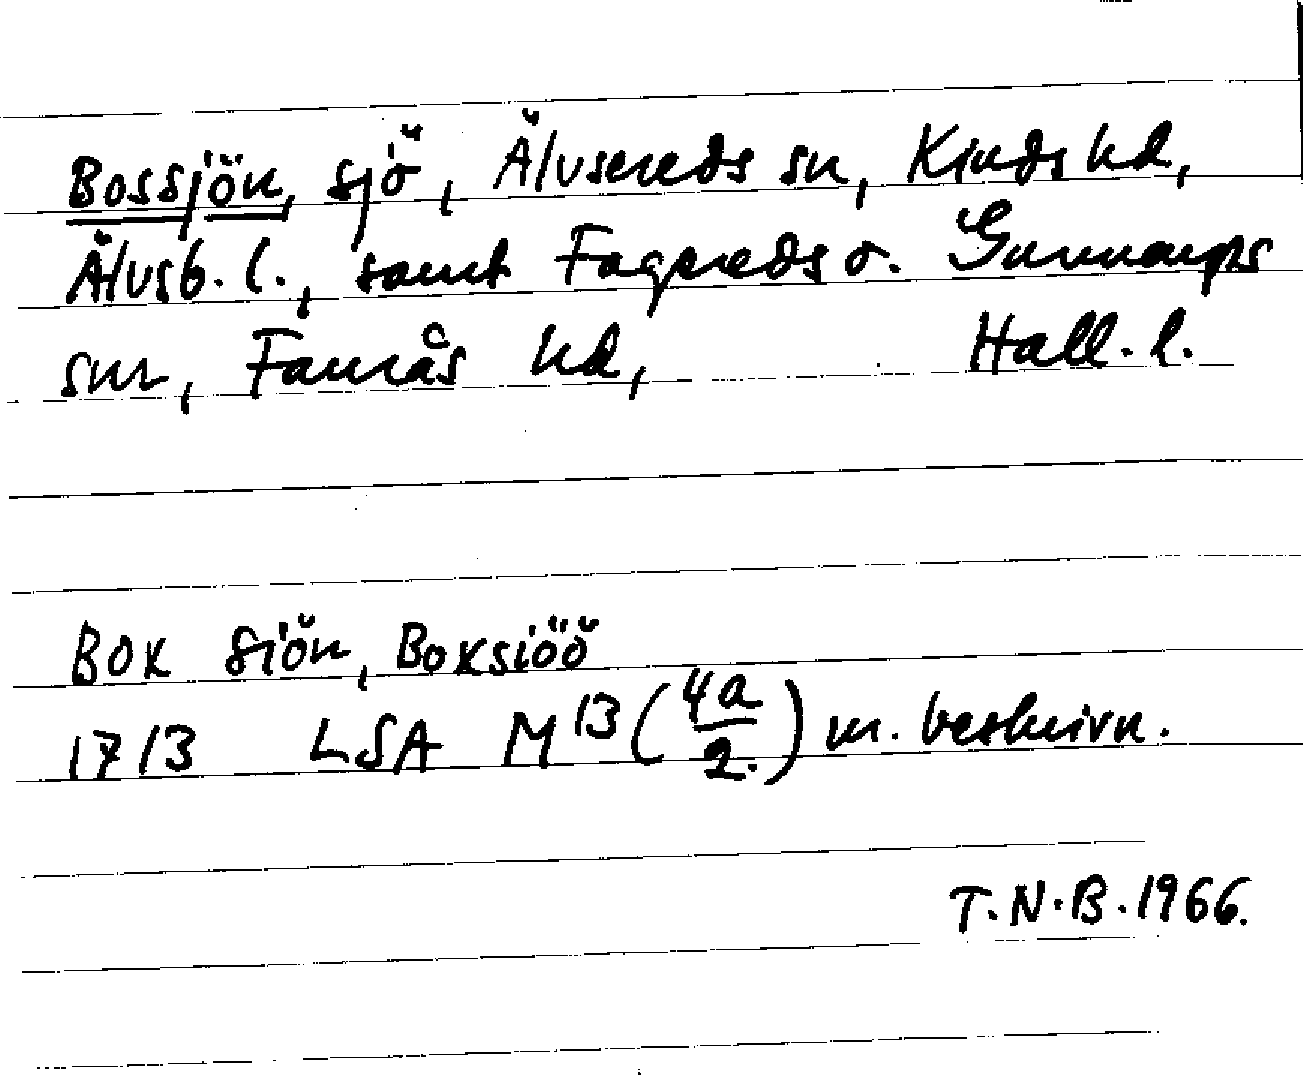 Bossjön, sjö, Älvsereds sn, Kinds hd,
Älvsb. l., samt Fagereds o. Gunnarps
snr, Faurås hd, Hall. l.
Bok Siön, Boksiöö
1713 LSA M 13 (4a/2.) m. beskrivn.
T.N.B. 1966.